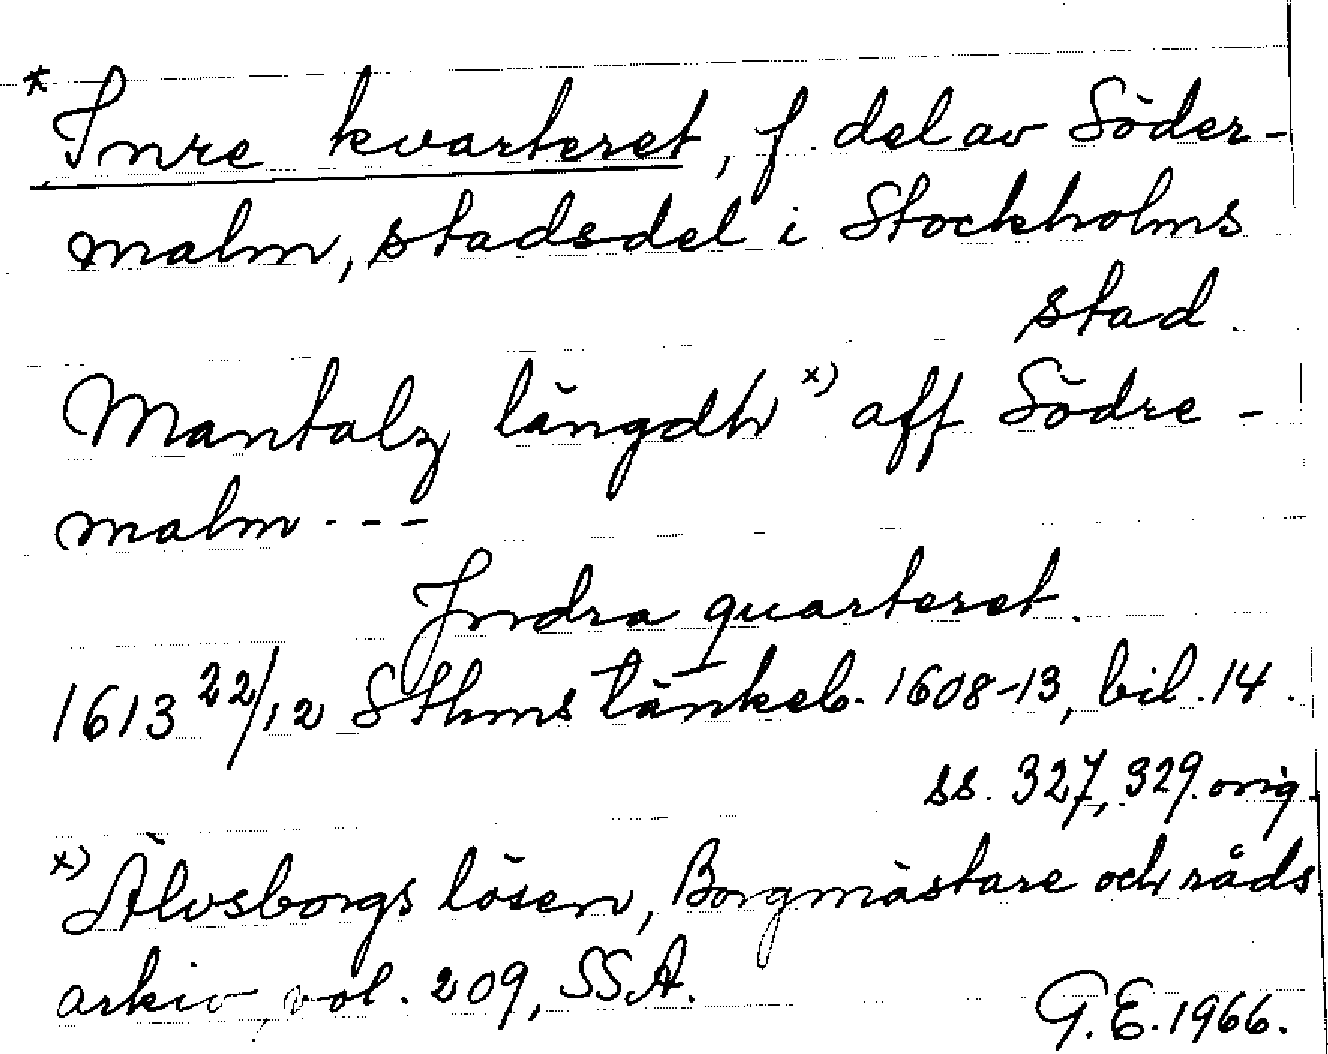 * Inre kvarteret, f. del av Söder-
malm, stadsdel i Stockholms
stad.
Mantalz längdh x) aff Södre-
malm ---
Indra quarteret.
1613 22/12 Sthms tänkeb. 1608-13, bil. 14.
ss. 327, 329. orig.
x) Älvsborgs lösen, Borgmästare och råds
arkiv, vol. 209, SSA.
G.E. 1966.